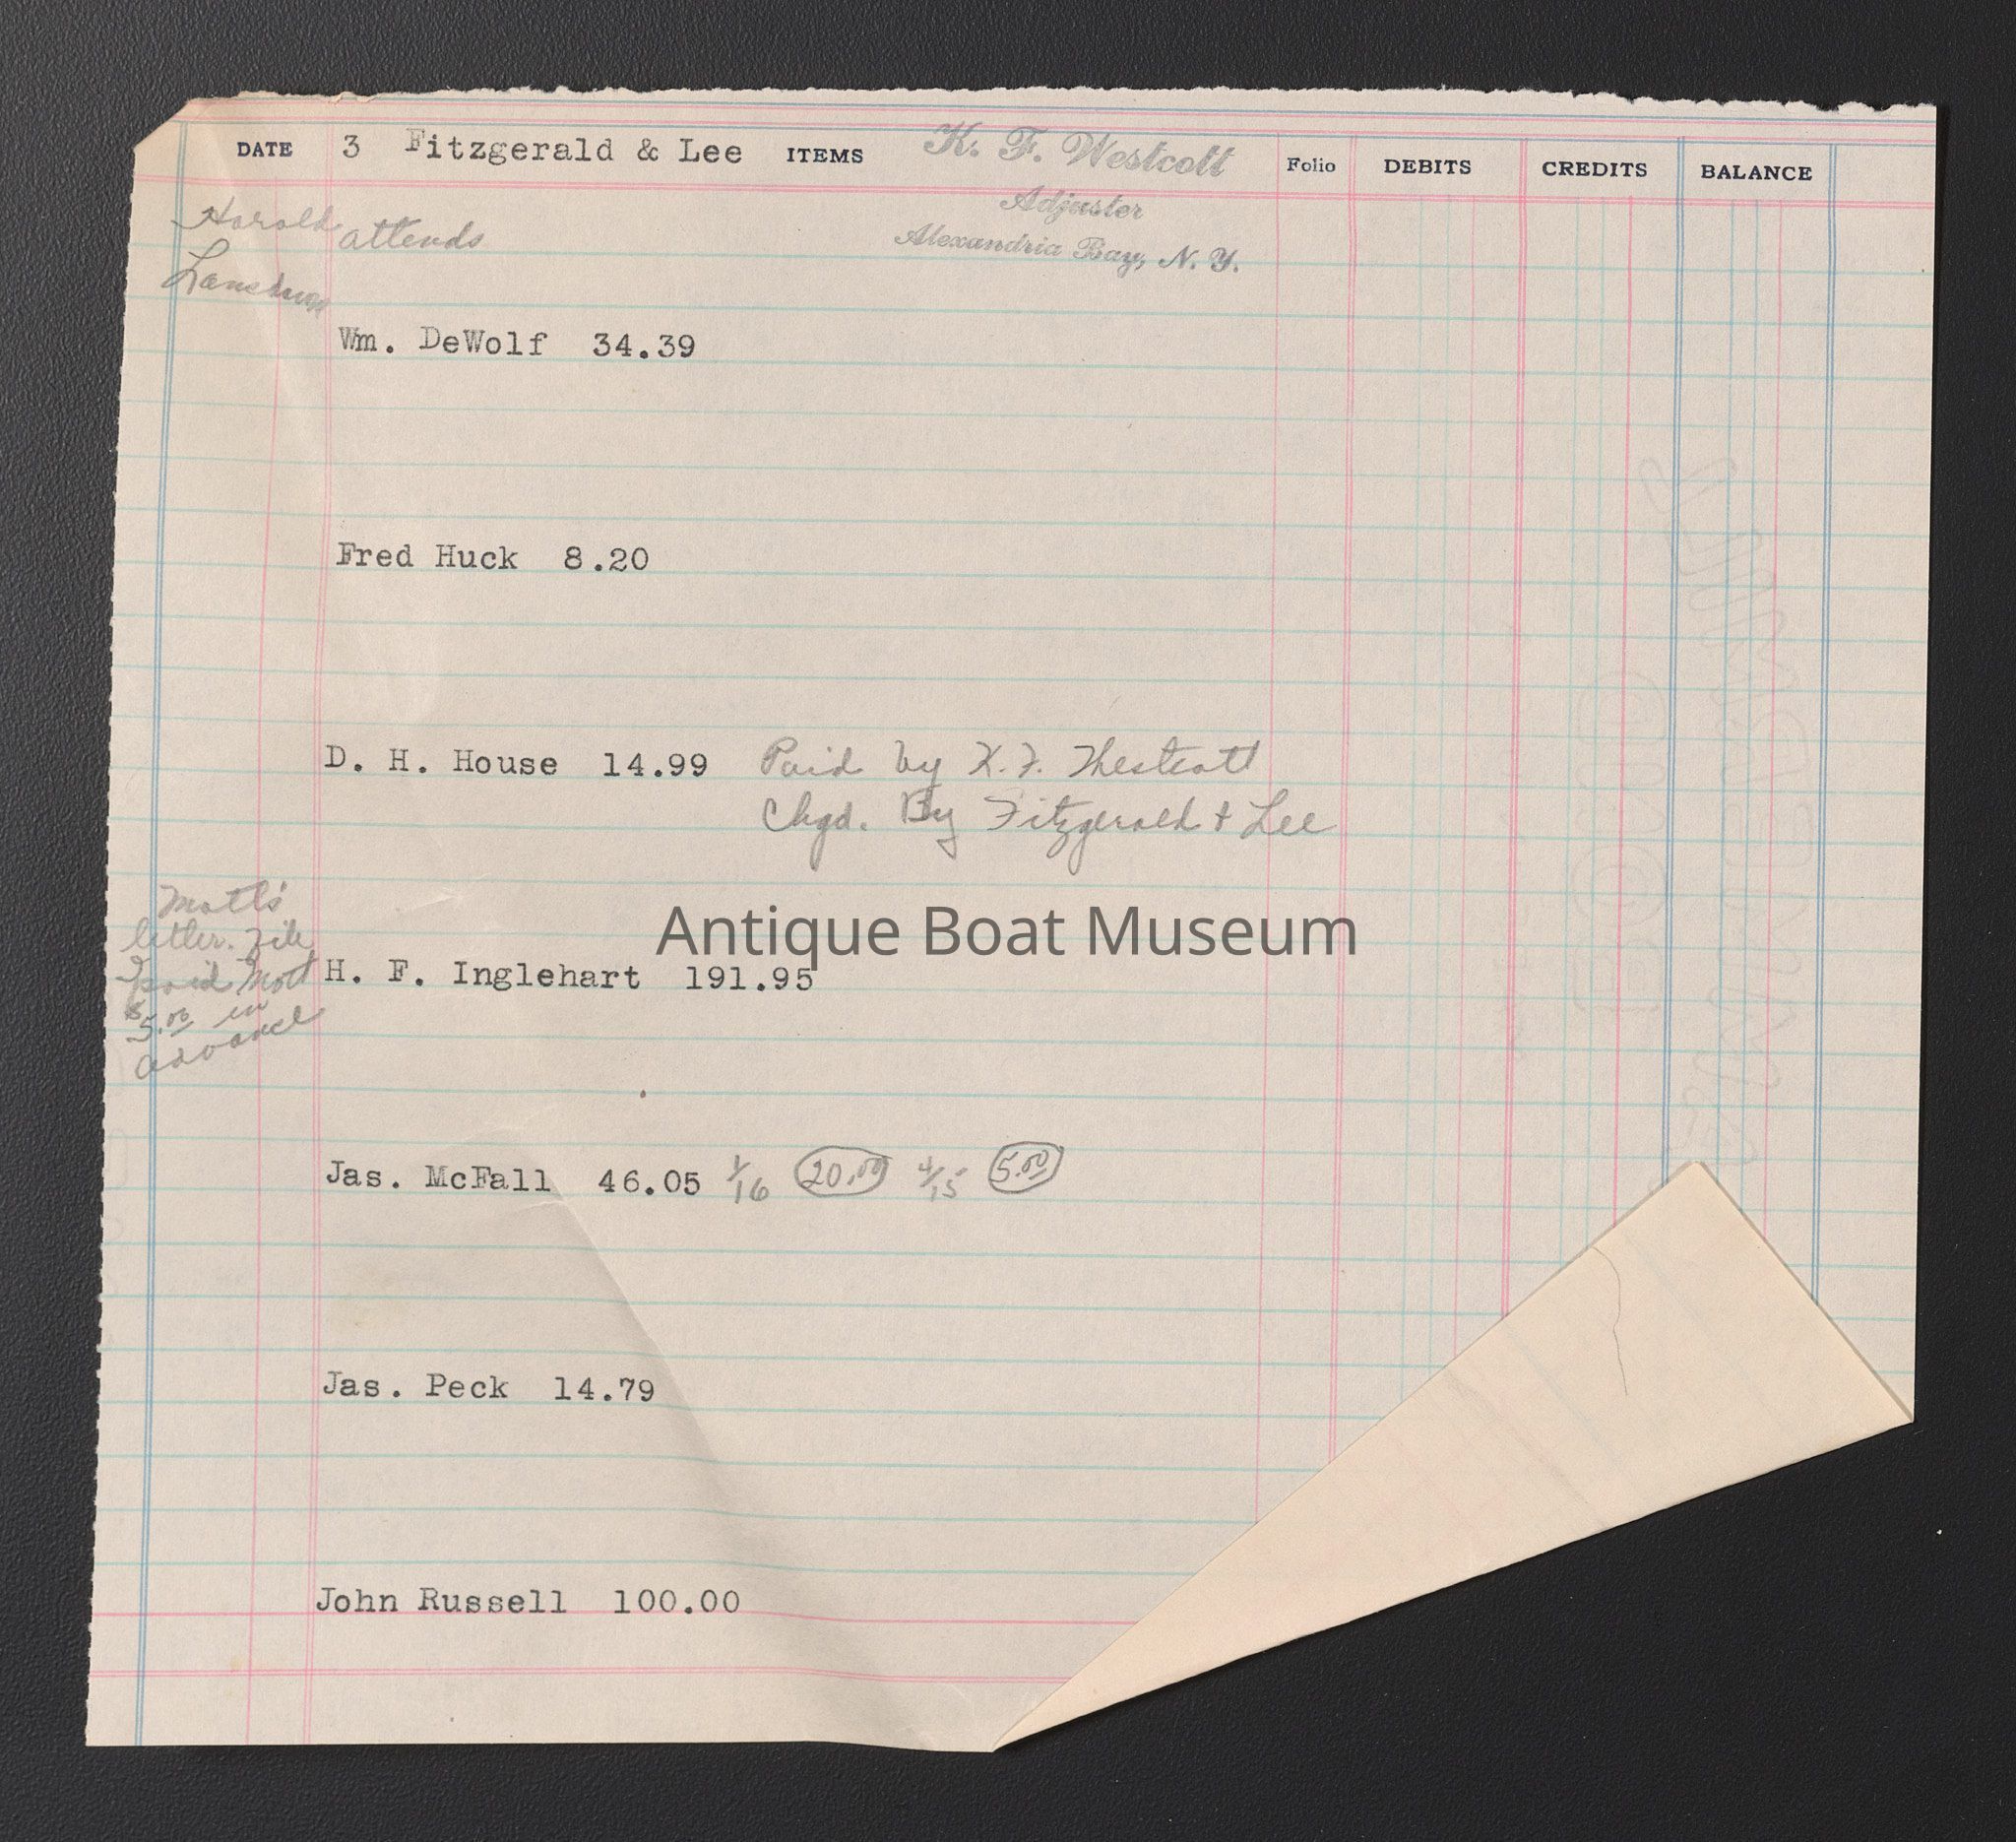 DATE 3 Fitzgerald & Lee ITEMS K. F. Westcott Folio DEBITS CREDITS BALANCE
Adjuster
Alexandria Bay, N. Y.
Harold attends
Wm. DeWolf 34.39
Fred Huck 8.20
D. H. House 14.99 Paid by K. F. Westcott
Chgd. By Fitzgerald & Lee
Mott's
letter. File
I paid Mott
$5.00 in
advance
Antique Boat Museum
H. F. Inglehart 191.95
Jas. McFall 46.05 1/16 20.00 4/15 5.00
Jas. Peck 14.79
John Russell 100.00